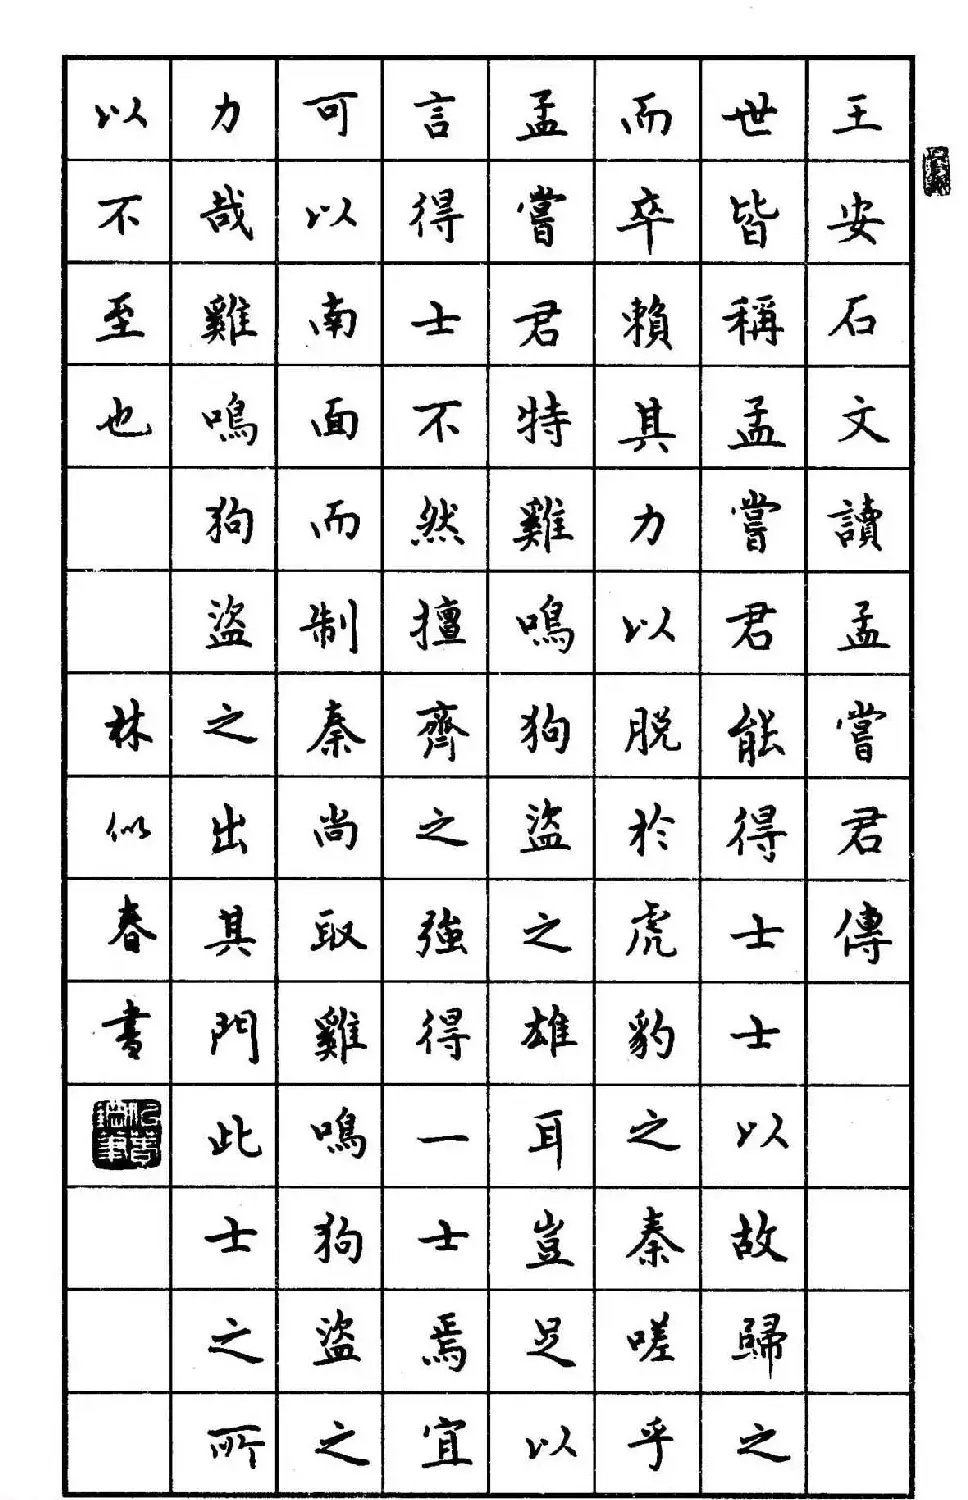 王安石文讀孟嘗君傳
世皆稱孟嘗君能得士士以故歸之
而卒賴其力以脱於虎豹之秦嗟乎
孟嘗君特雞鳴狗盜之雄耳豈足以
言得士不然擅齊之強得一士焉宜
可以南面而制秦尚取雞鳴狗盜之
力哉雞鳴狗盜之出其門此士之所
以不至也
林似春書